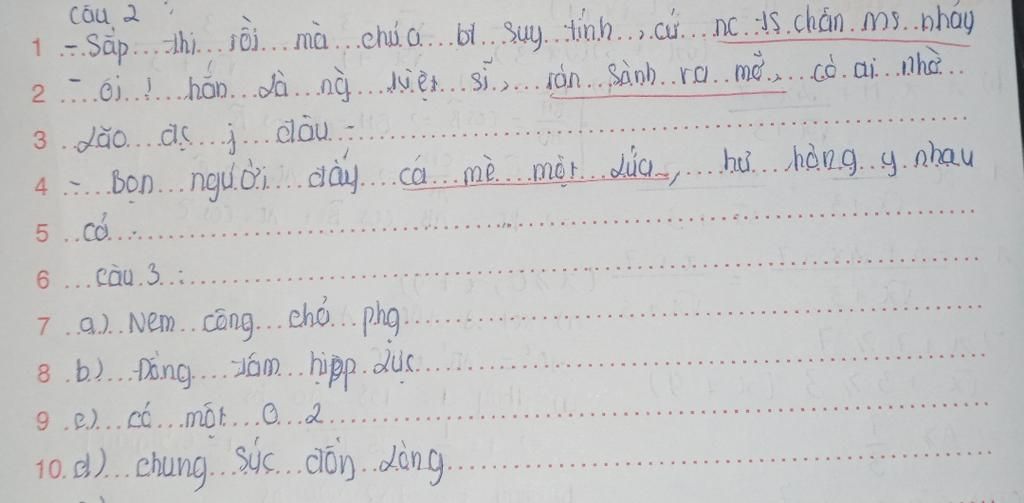 Câu 2
1 - Sắp thi rồi mà chú a bt suy tính, cứ nc ts chân ms nhảy
2 - ôi! hắn là ng` việt sĩ, rán sành ra mỡ, có ai nhờ
3 lão đc j đâu -
4 - Bọn người đấy cá mè một lứa, hư hỏng y nhau
5 cả -
6 câu 3 :
7 a) Nem công chả phg
8 b) Đồng tâm hiệp lực
9 c) có một 0 2
10. d) chung sức đồn lòng